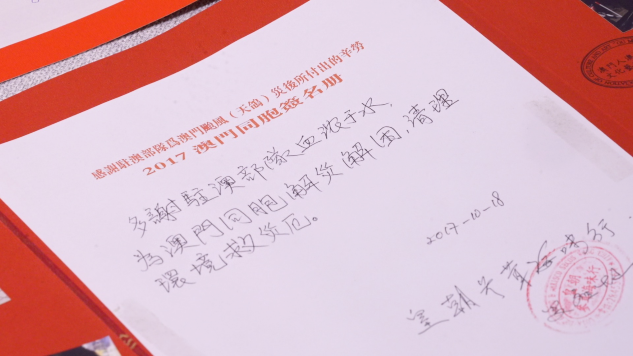 感謝駐澳部隊爲澳門颱風（天鴿）災後所付出的辛勞
2017 澳門同胞簽名册
多謝駐澳部隊血濃于水,
為澳門同胞解災解困,清理
環境救災厄。
2017-10-18